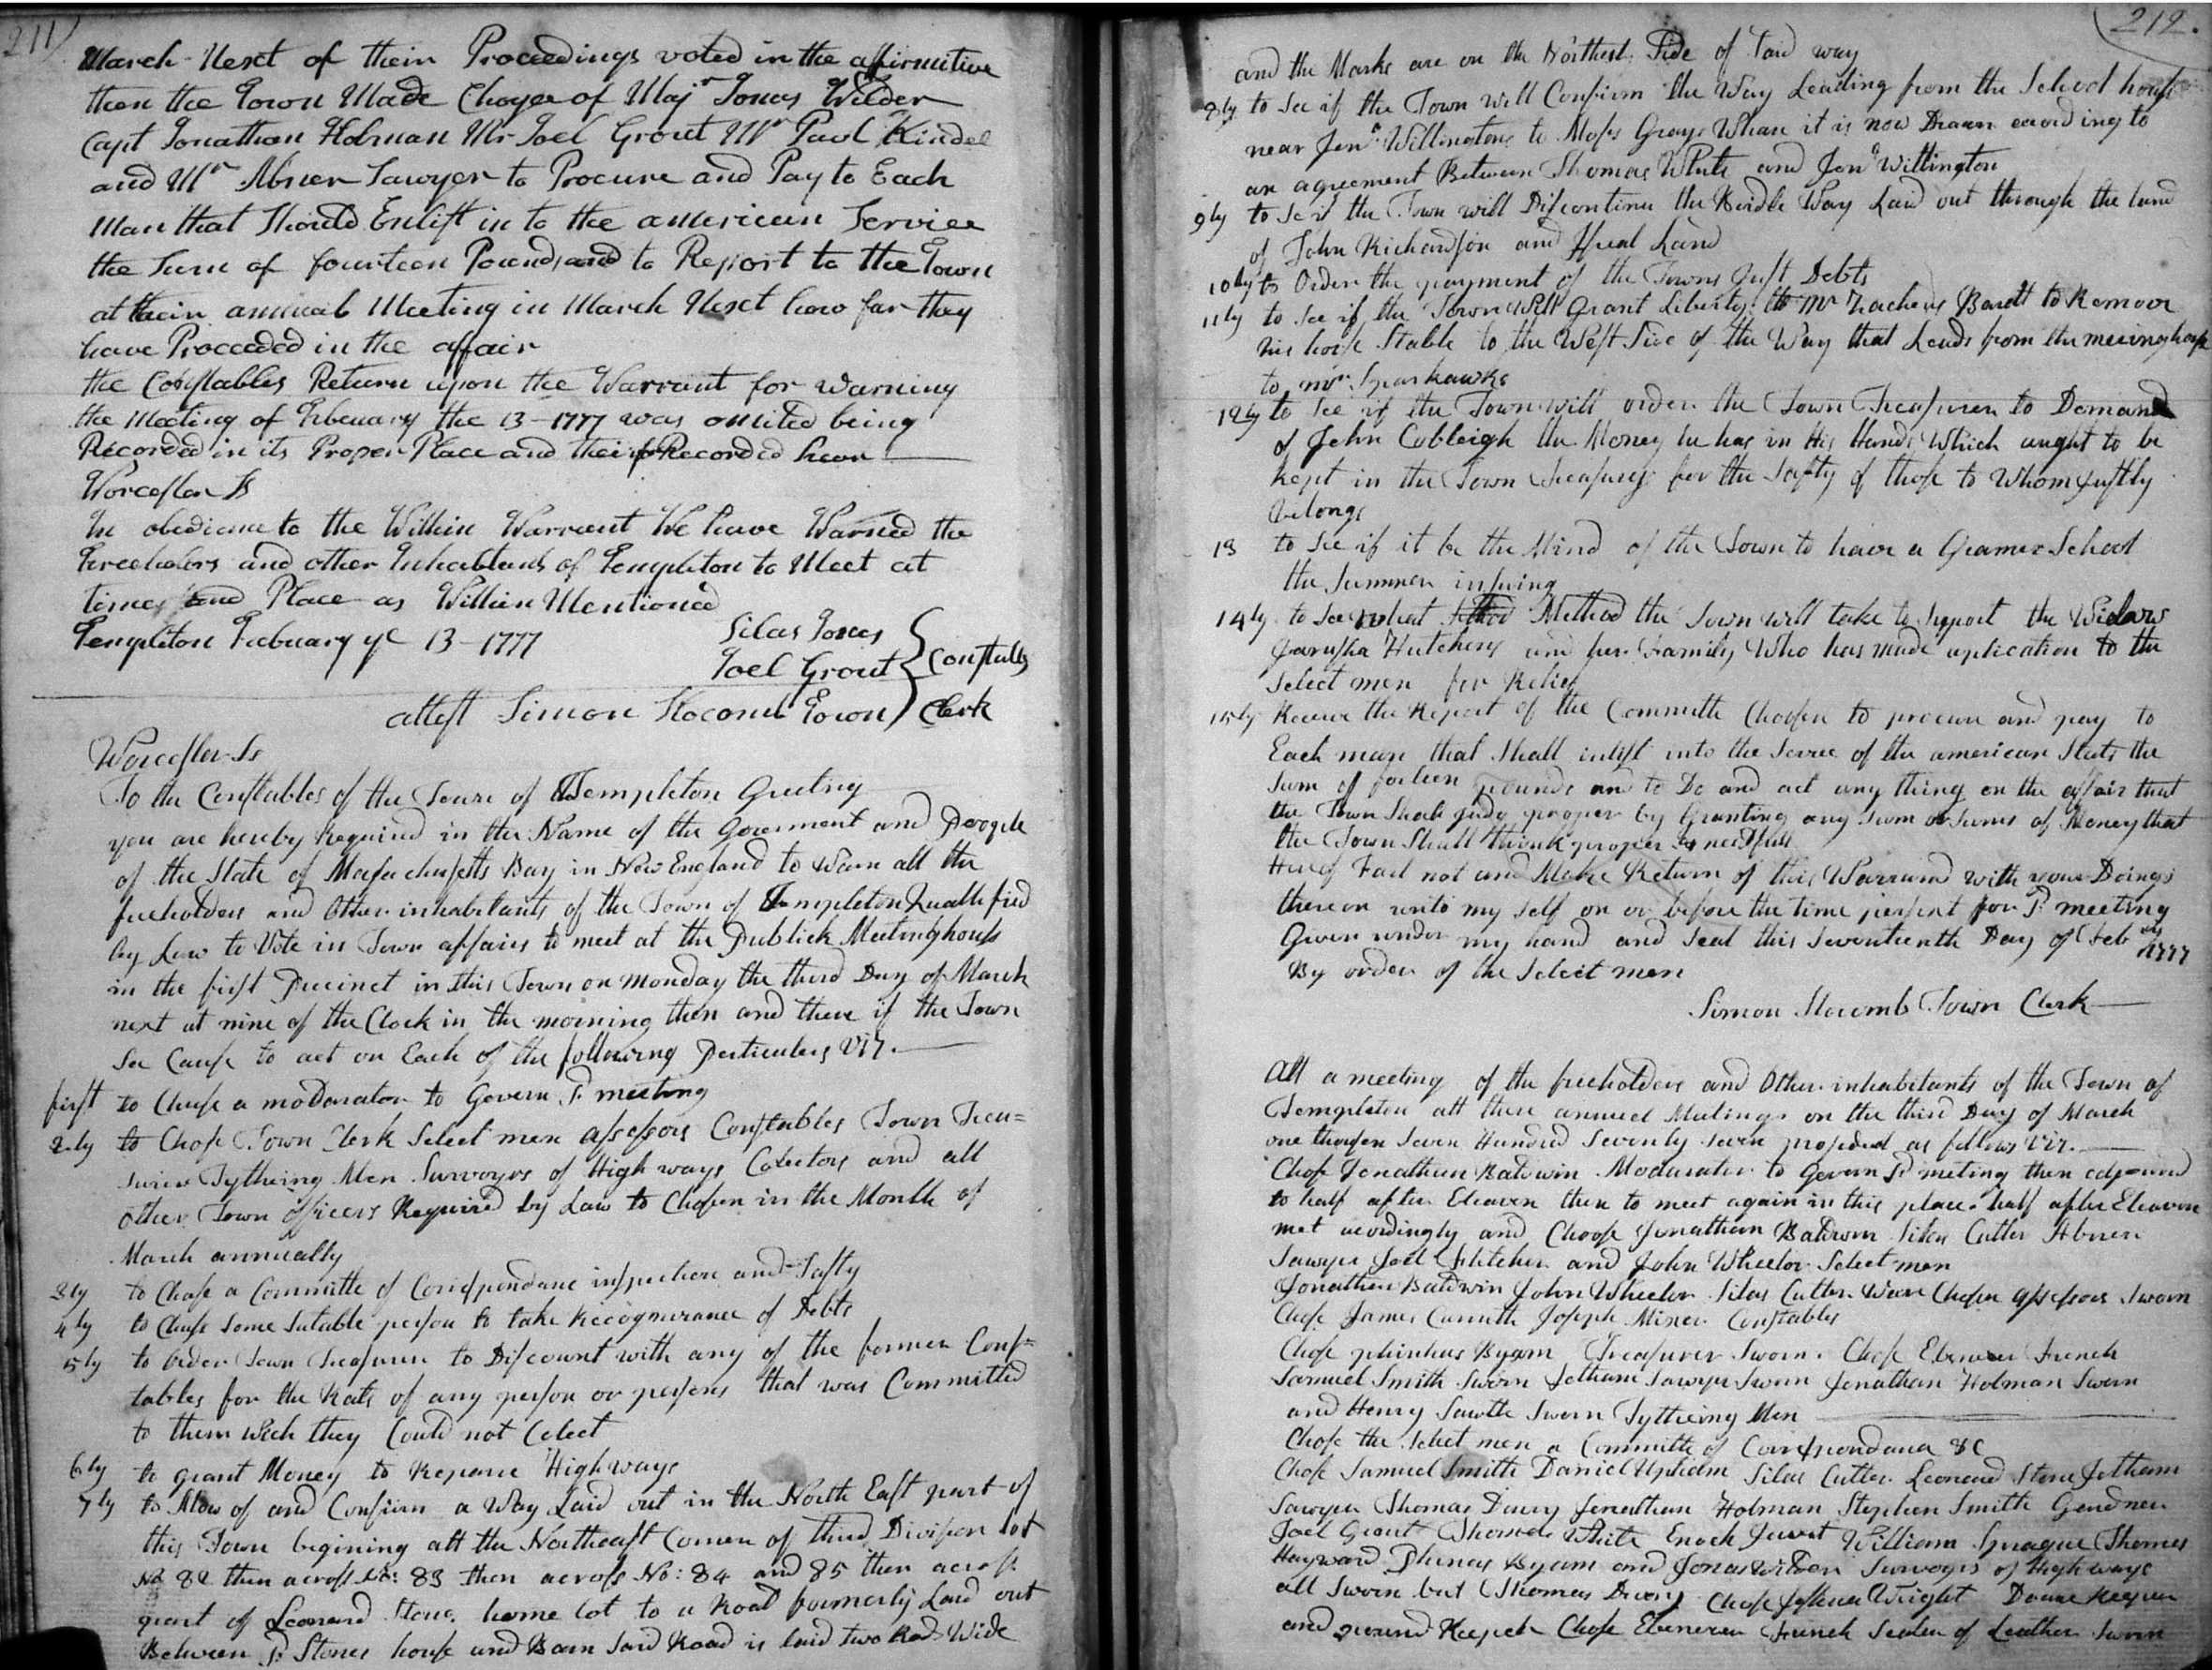 211
March Next of their Proceedings voted in the affirmitive
then the Town Made Choyce of Majr Jonas Wilder
Capt Jonathan Holman Mr Joel Grout Mr Paul Kindel
and Mr Abner Sawyer to Procure and Pay to Each
Man that Should Enlist in to the american Service
the Sum of fourteen Pounds and to Report to the Town
at their annual Meeting in March Next how far they
have Proceeded in the affair
the Constables Return upon the Warrant for warning
the Meeting of Febuary the 13-1777 was omited being
Recorded in its Proper Place and Recorded hear
Worcester Ss
In obediance to the Within Warrant We have Warned the
Freeholders and other Inhabitants of Templeton to Meet at
times and Place as Within Mentioned
Templeton Febuary ye 13-1777
Silas Jones
Joel Grout } Constables
attest Simon Slocomb Town Clerk
Worcester Ss
To the Constables of the Town of Templeton Greeting
you are hereby Required in the Name of the Goverment and People
of the State of Massachusetts Bay in New England to Warn all the
freeholders and Other inhabitants of the Town of Templeton Quallified
by Law to Vote in Town affairs to meet at the Publick Meetinghouse
in the first Precinct in this Town on monday the third Day of March
next at nine of the Clock in the morning then and there if the Town
See Cause to act on Each of the following Perticulers Viz.
first to Chuse a moddarator to Govern Sd meeting
2ly to Chose Town Clerk Select men assessors Constables Town Trea=
surer Tythering Men Survoyrs of High ways Colectors and all
other Town officers Required by Law to Chosen in the Month of
March annually
3ly to Chose a Committe of Corrispondanc inspection and Safty
4ly to Chuse Some Sutable person to take Recognizance of Debts
5ly to order Town Treasurer to Discount with any of the former Cons=
tables for the Rats of any person or persons that was Committed
to them Wich they Could not Colect
6ly to grant Money to Repare High ways
7ly to Alow of and Confirm a Way Laid out in the North East part of
this Town begining att the Northeast Corner of third Division lot
No 82 then across No: 83 then across No: 84 and 85 then across
part of Leonard Stons home lot to a Road formerly Laid out
Between Sd Stones house and Barn Said Road is laid two Rods Wide
212.
and the Marks are on the Northest Side of Said way
8ly to See if the Town Will Confirm the Way Leading from the School house
near Jona Willingtons to Moses Grays Whare it is now Drawn according to
an agreement Between Thomas White and Jona Willington
9ly to Se if the Town will Discontinu the Bridle Way Laid out through the land
of John Richardson and Land
10ly to Order the payment of the Towns Just Debts
11ly to See if the Town Will Grant Liberty to Mr Zacheus Barett to Remove
his horse Stable to the West Side of the Way that Leads from the meeinghouse
to mr Sparhawks
12ly to See if the Town will order the Town Treasurer to Demand
of John Cobleigh the Money he has in His Hands Which aught to be
kept in the Town Treasury for the Safty of those to Whom justly
belongs
13 to See if it be the Mind of the Town to have a Gramer School
the Summer insuing
14ly to See what Method the Town will take to Support the Widow
Jarusha Hutchens and her Family Who has made aplication to the
Select men for Relief
15ly Receive the Report of the Committe Choosen to procure and pay to
Each man that Shall inlist into the Servce of the american Stats the
Sum of forteen pounds and to Do and act any thing on the affair that
the Town Shall judg proper by Granting any Sum or Sums of Money that
the Town Shall think proper needfull
Hereof Fail not and Make Return of this Warrand with your Doings
thereon unto my Self on or before the time perfixt for Sd meeting
Given under my hand and Seal this Seventeenth Day of Feb 1777
By order of the Select men
Simon Slocomb Town Clerk
Att a meeting of the freeholders and Other inhabitants of the Town of
Templeton att there annuel Meetings on the third Day of March
one Seven Hundred Seventy Seven proseded as follows Viz.
Chose Jonathan Baldwin Modarator to Govern Sd meeting then adjourned
to half after Eleaven then to meet again in this place half after Eleaven
met acordingly and Choose Jonathan Baldwin Silas Cutler Abner
Sawyer Joel Fletcher and John Wheelor Select men
Jonathan Baldwin John Wheelor Silas Cutler Ware Chosen assessors Sworn
Chose James Carruth Joseph Miner Constables
Chose phinhas Byam Treasurer Sworn. Chose Ebenezer French
Samuel Smith Sworn Jotham Sawyer Sworn Jonathan Holman Sworn
and Henry Sawtle Sworn Tythering Men
Chose the Select men a Committe of Corrispondance &c
Chose Samuel Smith Daniel Upham Silas Cutler Leonard Stone Jotham
Sawyer Thomas Drury Jonathan Holman Stephen Smith Gardner
Joel Grout Thomas White Enoch Jewet William Sprague Thomas
Hayward Phineas Byam and Jonas Wilder Survoyrs of High ways
all Sworn but Thomas Drury Chose Joshua Wright Deare Keeper
and pound Keeper Chose Ebenezer French Sealer of Leather Sworn